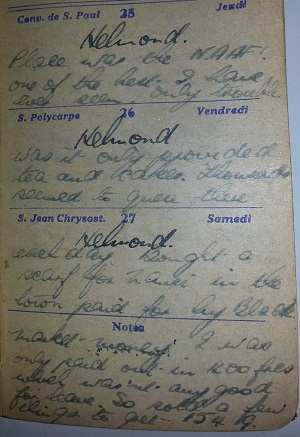 Conv. de S. Paul 25 Jeudi
Helmond.
Place was the N.A.A.F.I.
one of the best I have
ever seen only trouble
S. Polycarpe 26 Vendredi
Helmond
was it only provided
tea and cakes. Thousands
seemed to queue there
S. Jean Chrysost. 27 Samedi
Helmond.
each day bought a
scarf for in the
town paid for by black
Notes
market money. I was
only paid out in 100 frcs
which wasn't any good
for leave. So sold a few
things to get 154 g.